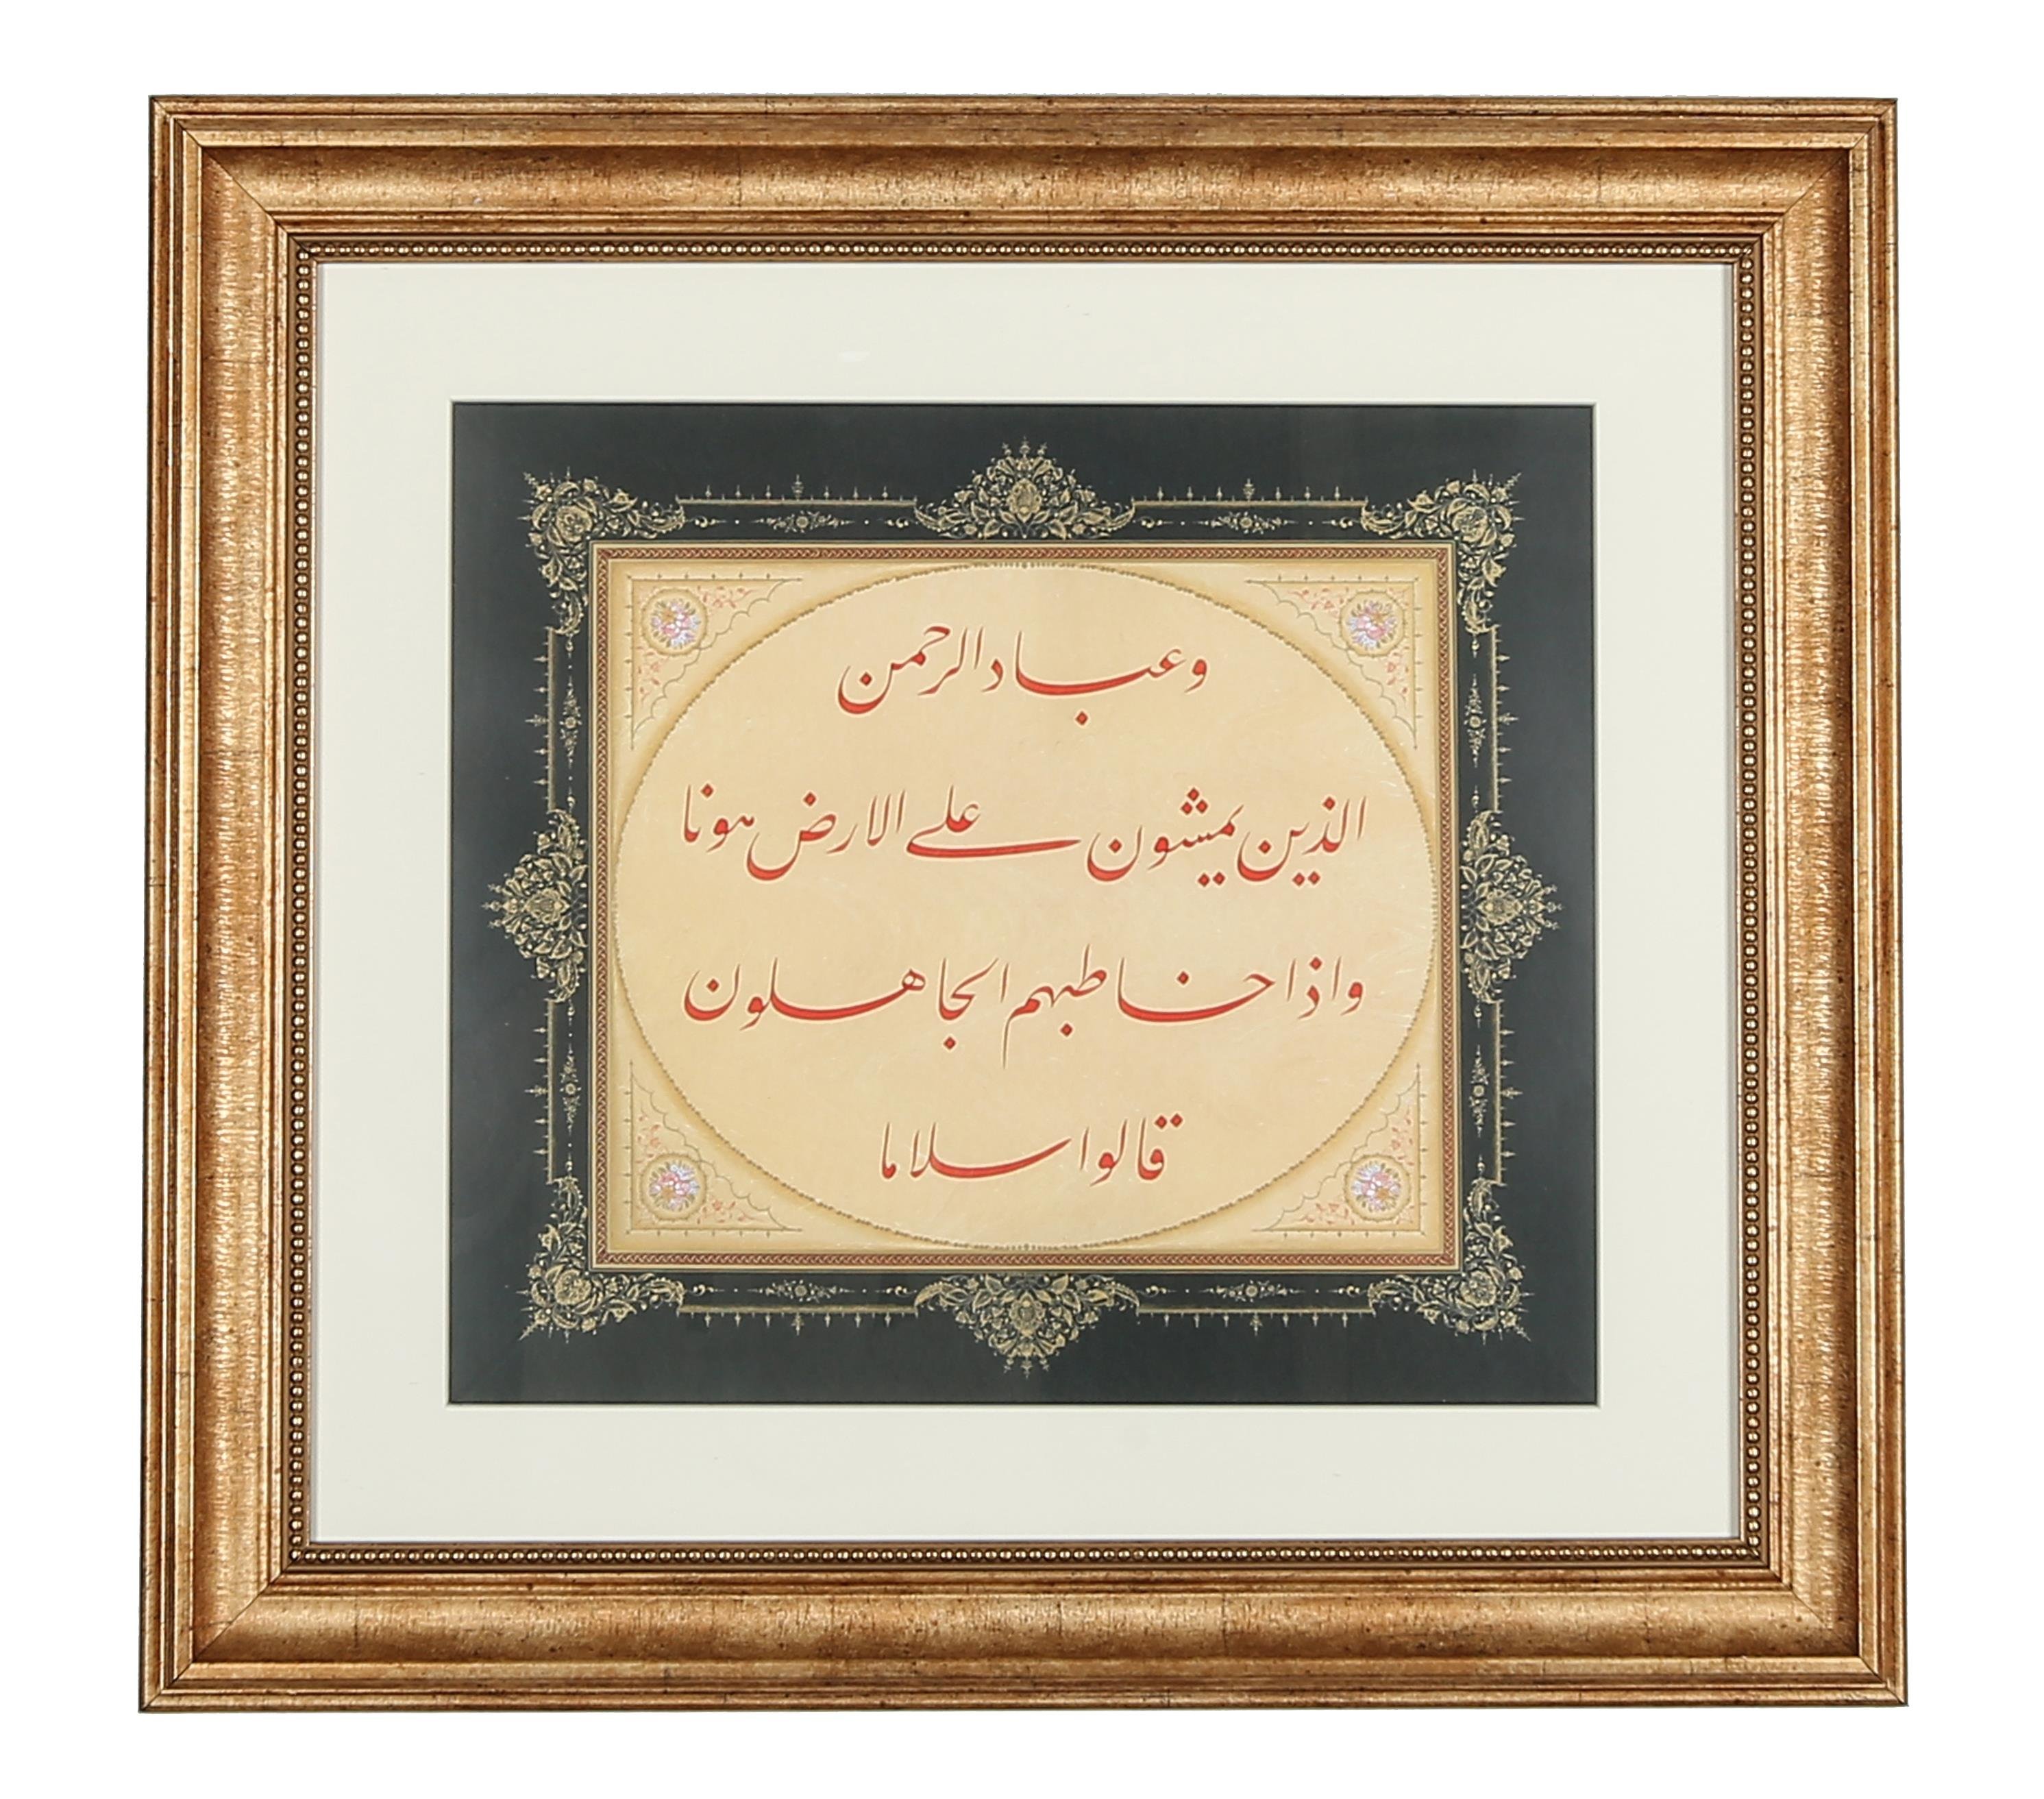 وعباد الرحمن
الذين يمشون على الارض هونا
واذا خاطبهم الجاهلون
قالوا سلاما